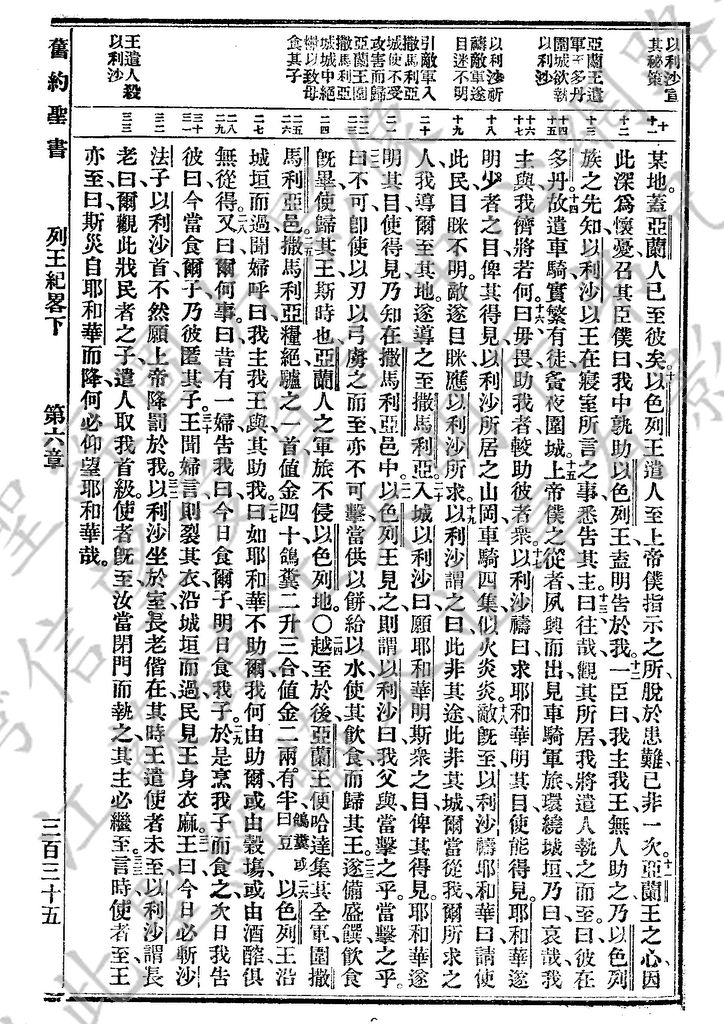 以利沙宣
其秘策
亞蘭王遣
軍至多丹
圍城欲執
以利沙
以利沙祈
禱敵軍遂
目迷不明
引敵軍入
撒馬利亞
城使不受
攻害而歸
亞蘭王圍
撒馬利亞
城城中絕
糧以致母
食其子
王遣人殺
以利沙
十
十一
十二
十三
十四
十五
十六
十七
十八
十九
二十
二一
二二
二三
二四
二五
二六
二七
二八
二九
三十
三一
三二
三三
某地、蓋亞蘭人已至彼矣。十以色列王遣人至上帝僕指示之所、脫於患難、已非一次。十一亞蘭王之心、因
此深爲懷憂、召其臣僕曰、我中孰助以色列王、盍明告於我。十二一臣曰、我主我王、無人助之、乃以色列
族之先知以利沙、以王在寢室所言之事、悉告其主。十三曰、往哉、觀其所居、我將遣人執之、而至曰、彼在
多丹。十四故遣車騎、實繁有徒、夤夜圍城。十五上帝僕之從者、夙興而出、見車騎軍旅、環繞城垣、乃曰、哀哉我
主、與我儕將若何。十六曰、毋畏、助我者較助彼者衆。十七以利沙禱曰、求耶和華明其目、使能得見、耶和華遂
明少者之目、俾其得見、以利沙所居之山岡、車騎四集、似火炎炎。十八敵旣至、以利沙禱耶和華曰、請使
此民目眯不明、敵遂目眯、應以利沙所求。十九以利沙謂之曰、此非其途、此非其城、爾當從我、爾所求之
人、我導爾至其地、遂導之至撒馬利亞。二十入城、以利沙曰、願耶和華明斯衆之目、俾其得見、耶和華遂
明其目、使得見、乃知在撒馬利亞邑中。二一以色列王見之、則謂以利沙曰、我父與、當擊之乎、當擊之乎。
二二曰、不可、卽使以刃以弓虜之而至、亦不可擊、當供以餅、給以水、使其飲食而歸其王。二三遂備盛饌、飲食
旣畢、使歸其王、斯時也、亞蘭人之軍旅、不侵以色列地。○二四越至於後、亞蘭王便哈達集其全軍、圍撒
馬利亞邑。二五撒馬利亞糧絕、驢之一首、値金四十、鴿糞二升三合、値金二兩有半。鴿糞或曰豆二六以色列王沿
城垣而過、聞婦呼曰、我主我王、與其助我。二七曰、如耶和華不助爾、我何由助爾、或由穀塲、或由酒醡、俱
無從得。二八又曰、爾何事、曰、昔有一婦、告我曰、今日食爾子、明日食我子。二九於是烹我子而食之、次日我告
彼曰、今當食爾子、乃彼匿其子。三十王聞婦言、則裂其衣、沿城垣而過、民見王身衣麻。三一王曰、今日必斬沙
法子以利沙首、不然、願上帝降罰於我。三二以利沙坐於室、長老偕在、其時王遣使者未至、以利沙謂長
老曰、爾觀此戕民者之子、遣人取我首級、使者旣至、汝當閉門而執之、其主必繼至。三三言時、使者至、王
亦至、曰、斯災自耶和華而降、何必仰望耶和華哉。
舊約聖書　列王紀畧下　第六章　三百三十五